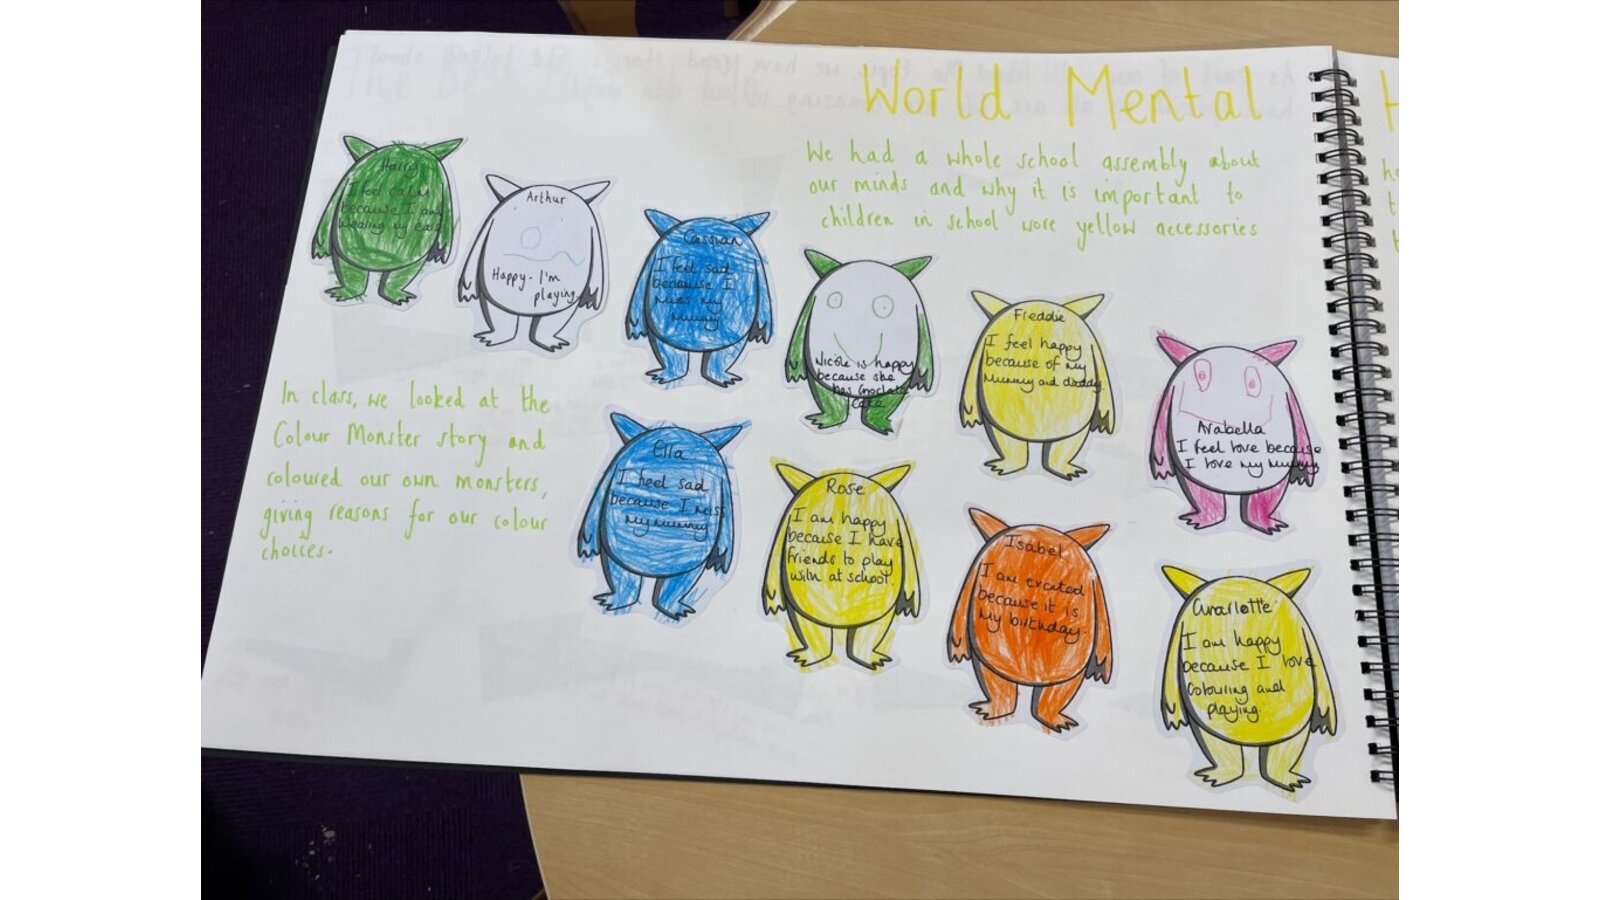 World Mental
We had a whole school assembly about
our minds and why it is important to
children in school wore yellow accessories
Harry
I feel calm
because I am
wearing my ears
Arthur
Happy - I'm
playing
Cassian
I feel sad
because I
miss my
mummy
Nicole is happy
because she
has chocolate
cake
Freddie
I feel happy
because of my
mummy and daddy
Arabella
I feel love because
I love my mummy
In class, we looked at the
Colour Monster story and
coloured our own monsters,
giving reasons for our colour
choices.
Ella
I feel sad
because I miss
my mummy
Rose
I am happy
because I have
friends to play
with at school.
Isabel
I am excited
because it is
my birthday
Charlotte
I am happy
because I love
colouring and
playing.